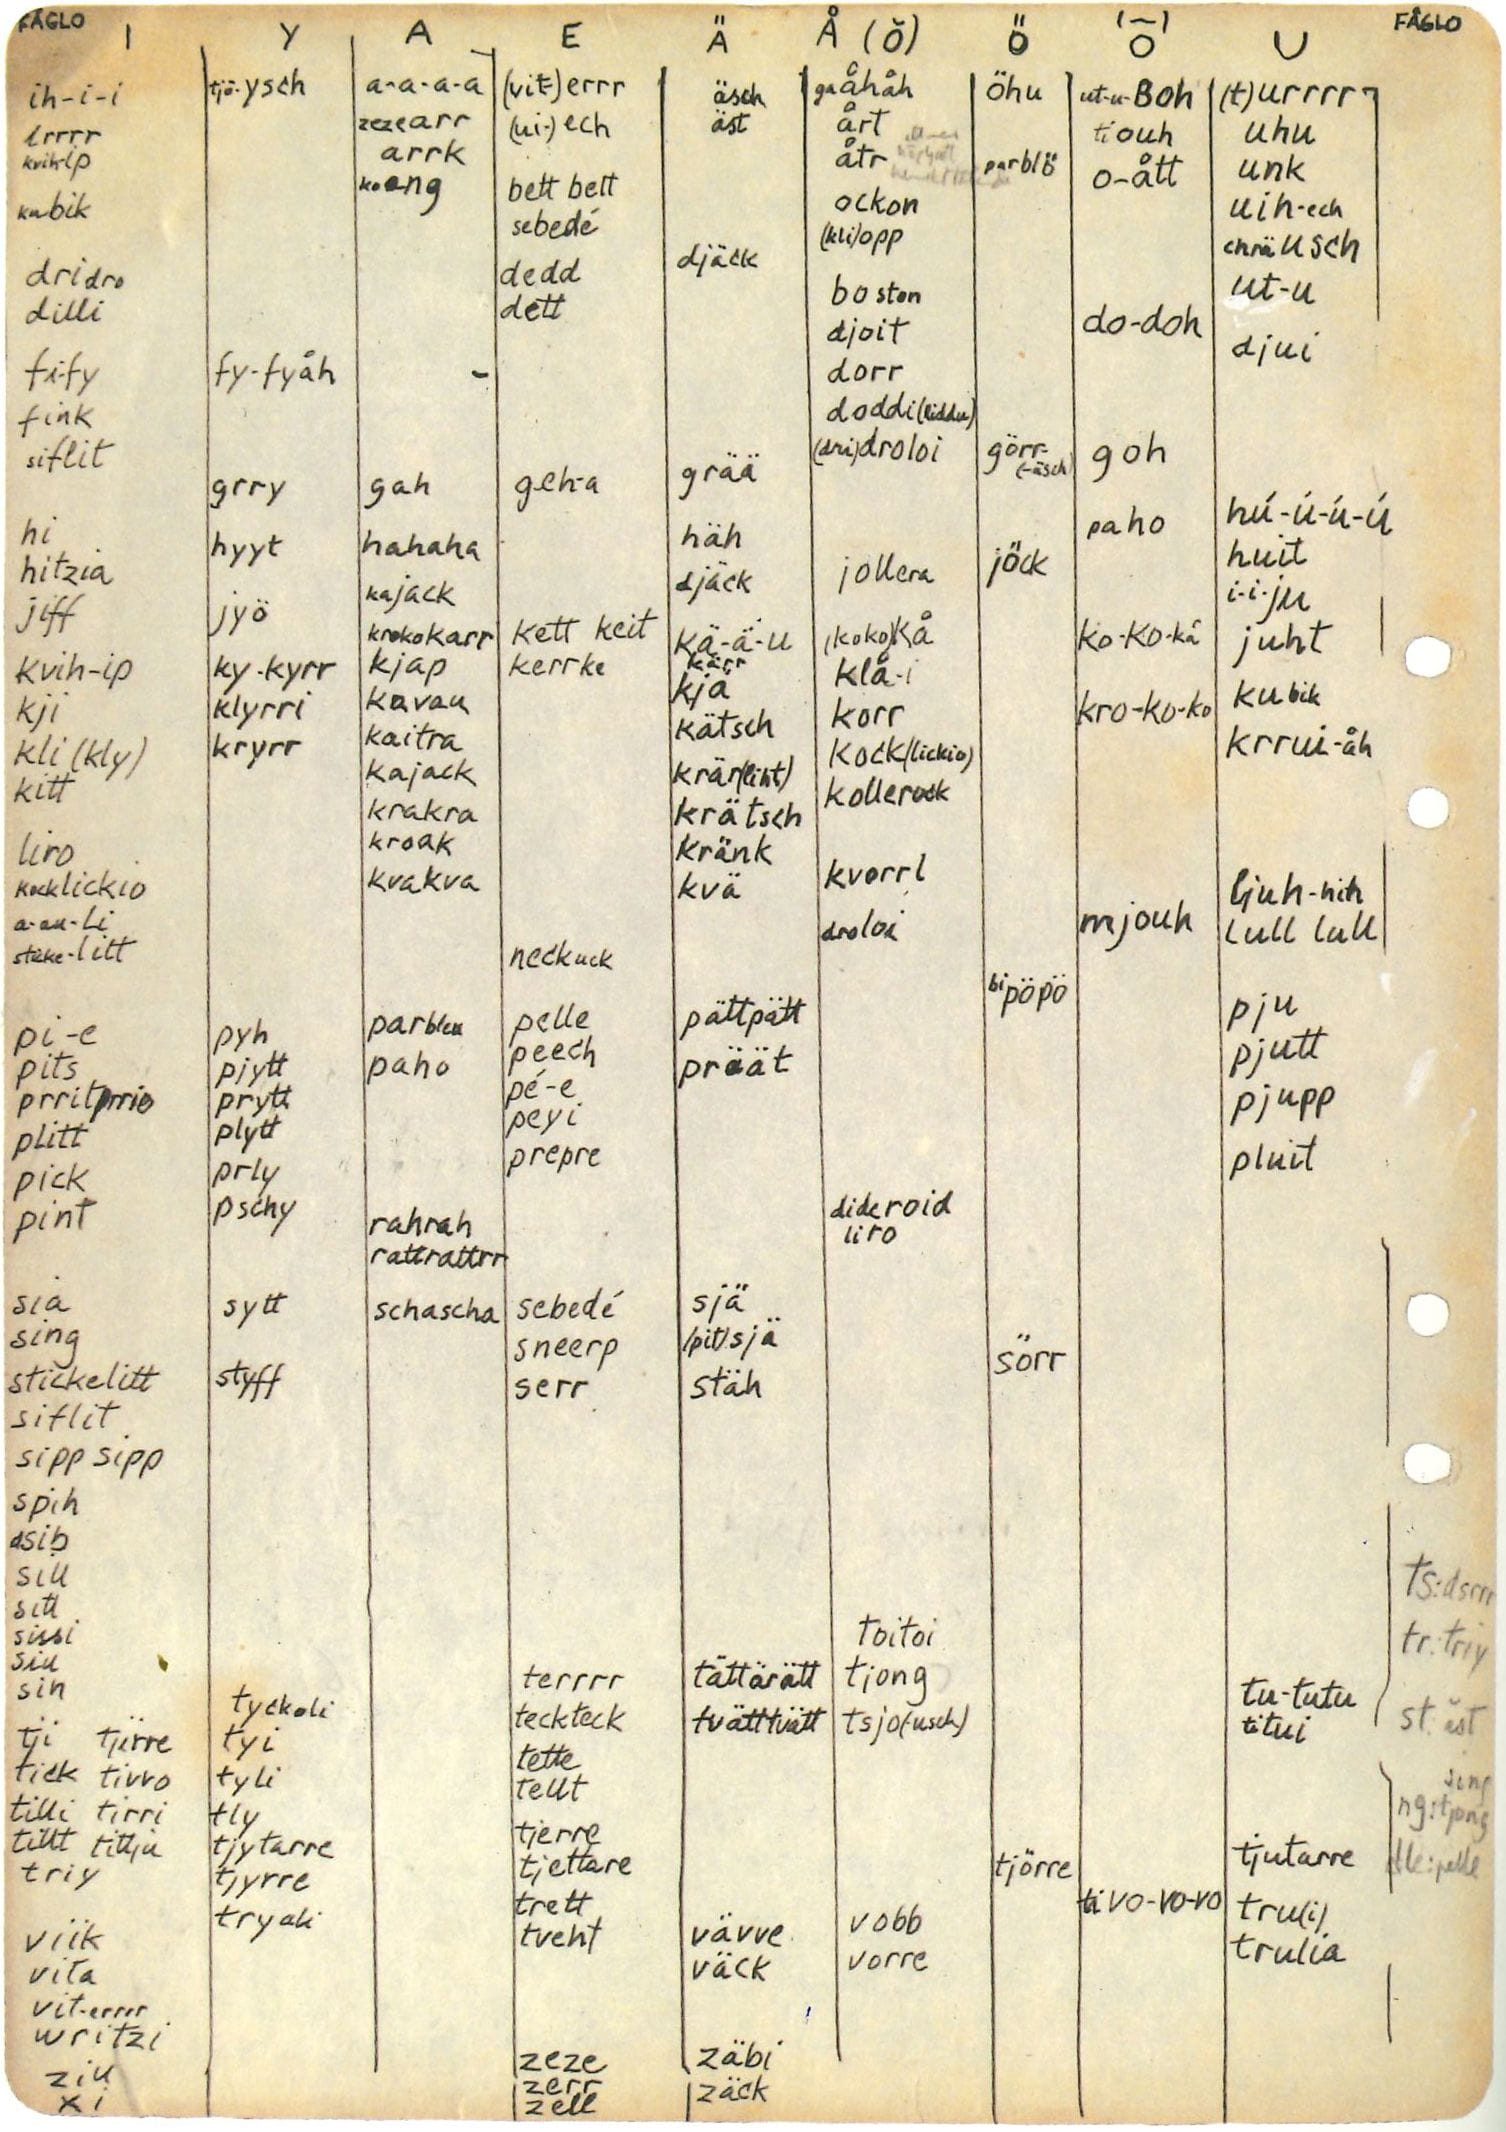 FÅGLO
FÅGLO
I
ih-i-i
irrrr
kvih-ip
kubik
dridro
dilli
fi-fy
fink
siflit
hi
hitzia
jiff
kvih-ip
kji
kli (kly)
kitt
liro
kocklickio
a-au-li
sticke-litt
pi-e
pits
prritprrio
plitt
pick
pint
sia
sing
stickelitt
siflit
sipp sipp
spih
dsib
sill
sitt
sissi
siu
sih
tji tjirre
tick tivvo
tilli tirri
tillt tillju
triy
viik
vita
vit-errrr
writzi
ziu
xi
Y
tjö-ysch
fy-fyåh
grry
hyyt
jyö
ky-kyrr
klyrri
kryrr
pyh
pjytt
prytt
plytt
prly
pschy
sytt
styff
tyckoli
tyi
tyli
tly
tjytarre
tjyrre
tryoli
A
a-a-a-a
zezearr
arrk
koang
gah
hahaha
kajack
krokokarr
kjap
kavau
kaitra
kajack
krakra
kroak
kvakva
parbleu
paho
rahrah
rattrattrr
schascha
E
(vit-)errr
(ui-)ech
bett bett
sebedé
dedd
dett
geh-a
kett keit
kerrke
neckuck
pelle
peech
pé-e
peyi
prepre
sebedé
sneerp
serr
terrrr
teckteck
tette
tellt
tjerre
tjettare
trett
tveht
zeze
zerr
zell
Ä
äsch
äst
djäck
grää
häh
djäck
kä-ä-u
kärr
kjä
kätsch
krär(liht)
krätsch
kränk
kvä
pättpätt
präät
sjä
(pit)sjä
stäh
tättärätt
tvättvätt
vävve
väck
zäbi
zäck
Å (ŏ)
gaåhåh
årt
åtr
ockon
(kli)opp
boston
djoit
dorr
doddi(liddu)
(dri)droloi
jollera
(koko)kå
klå-i
korr
kock(lickio)
kollerock
kvorrl
droloi
dideroid
liro
toitoi
tjong
tsjo(-usch)
vobb
vorre
Ö
öhu
parblö
görr-
(-äsch)
jöck
bipöpö
sörr
tjörre
(-)
O
ut-u-Boh
tiouh
o-ått
do-doh
goh
paho
ko-ko-kå
kro-ko-ko
mjouh
tivo-vo-vo
U
(t)urrrr
uhu
unk
uih-ech
chräusch
ut-u
djui
hú-ú-ú-ú
huit
i-i-ju
juht
kubik
krrui-åh
ljuh-hih
lull lull
pju
pjutt
pjupp
pluit
tu-tutu
titui
tjutarre
tru(i)
trulia
ts:dsrrr
tr:triy
st:äst
sing
ng:tjong
lle:pelle